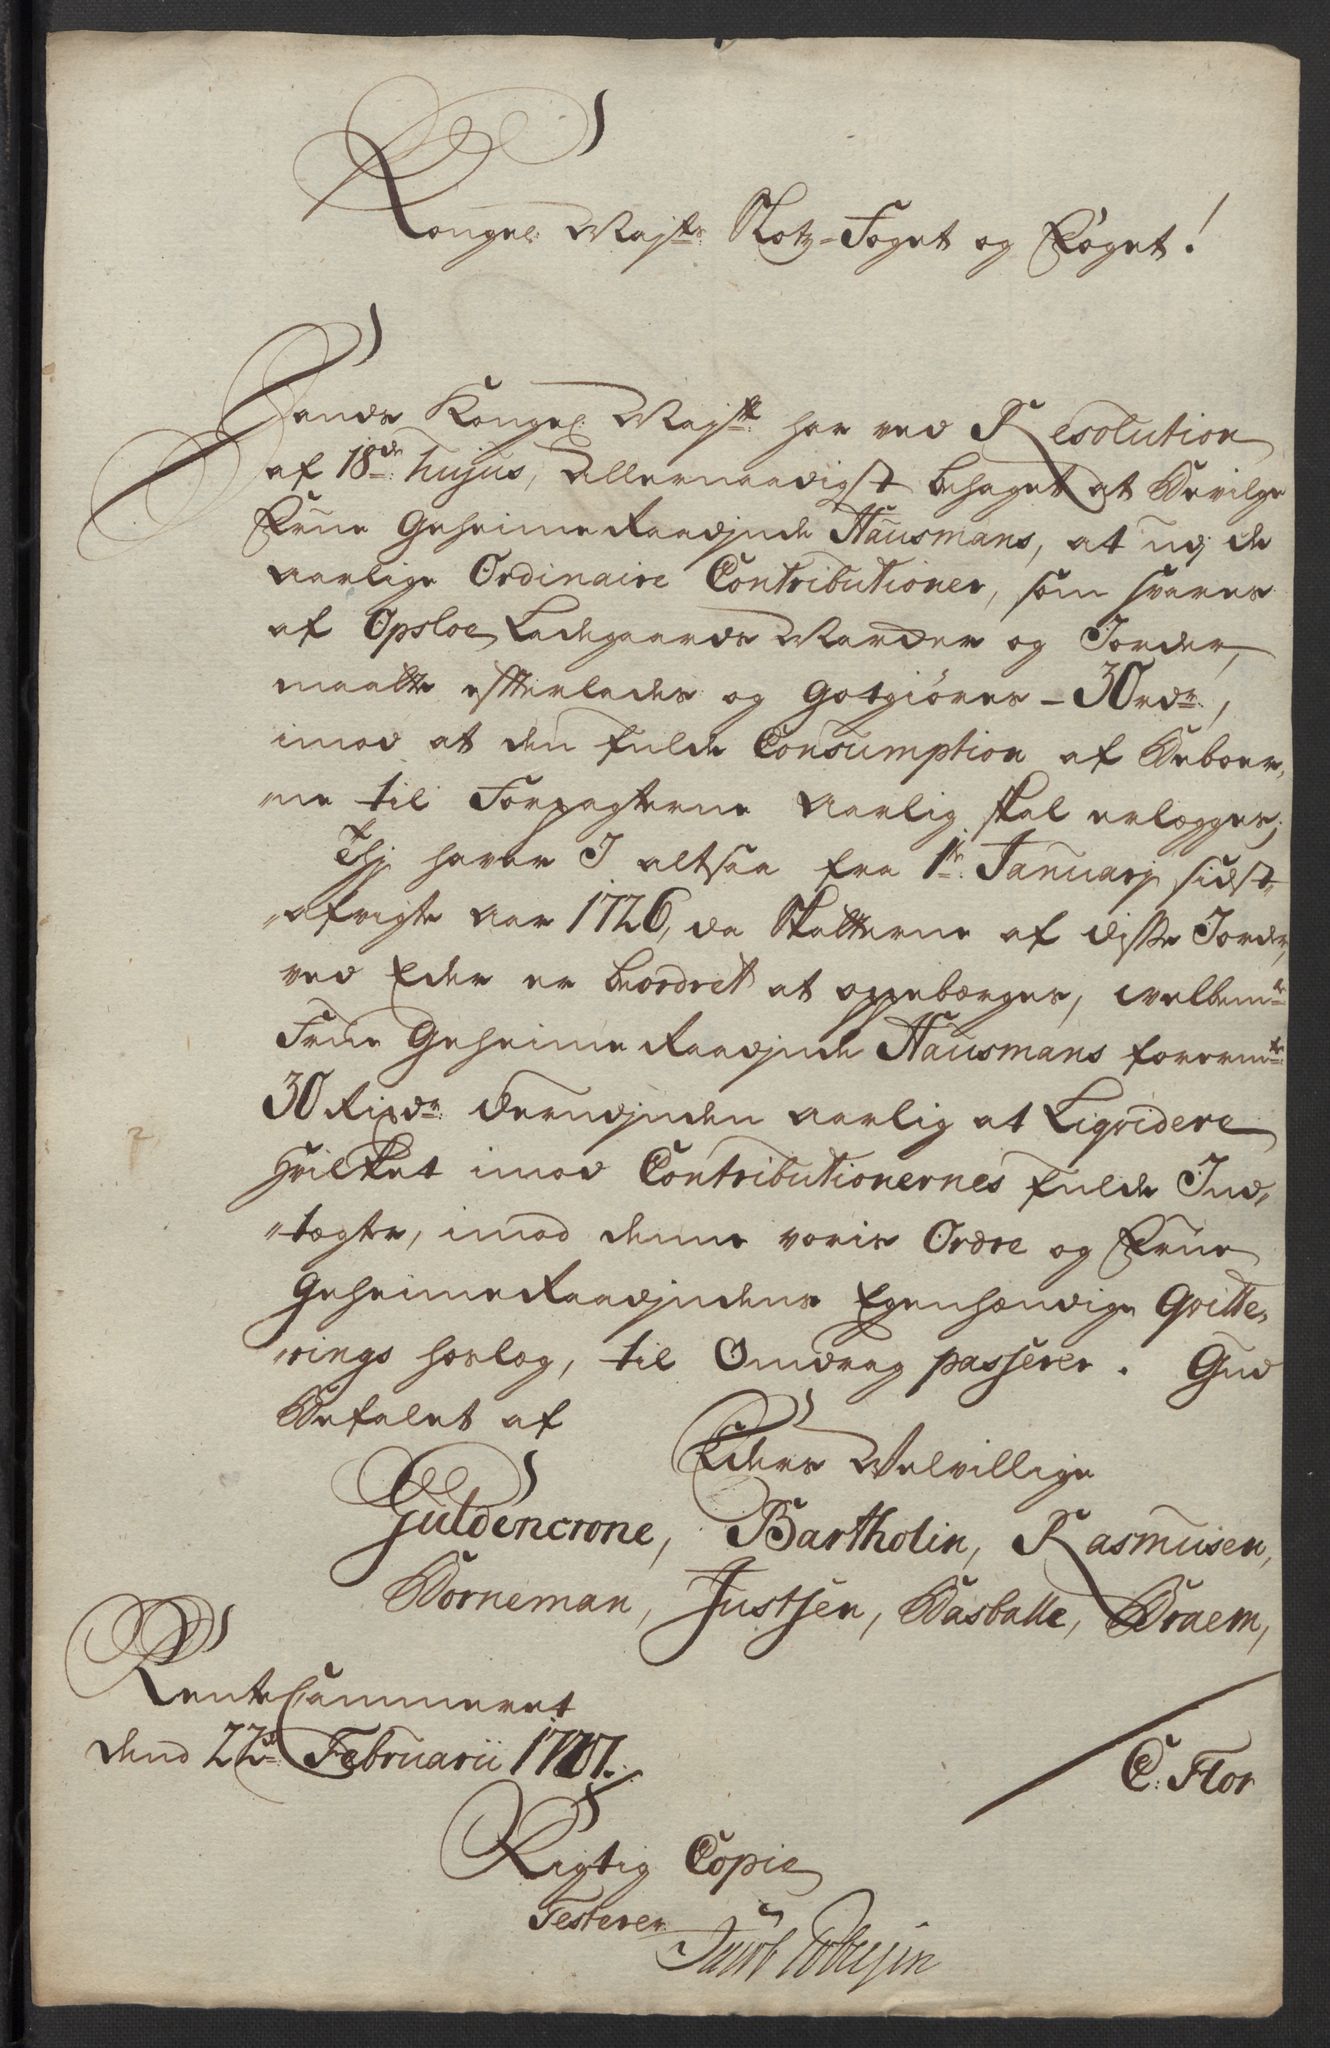 Kongel: Majts: Slotz-Foget og Foget!
Hands Kongel: Majtt: har ved Resolution
af 18de: hujus, Allernaadigst behaget at bevilge
Frue Geheime Raadjnde Hausmans, at udj de
aarlige Ordinaire Contributioner, som svares
af Opsloe Ladegaards Marcker og Jorder,
maatte efterlades og Gotgiøres - 30 rdr:,
imod at den fulde Consumption af Beboer,
ne til Forpagterne Aarlig skal erlegges;
Thj haver I altsaa fra 1te: Januarj sidst,,
,,afvigte aar 1726, da Skatterne af disse Jorder,
ved Eder er beordret at oppebærges, velbemte:
Frue Geheime Raadjnde Hausmans forermte:
30 Rixdr: derudjnden aarlig at Liqvidere
Hvilket imod Contributionernes fulde Ind,,
,,tægter, imod denne voris Ordre og Frue
Geheime Raadjndens Egenhændige Qvitte,,
,,rings hoslag, til Omdrag passerer. Gud
Befalet af
Eders Velvillige
Guldencrone, Bartholin, Rasmusen,
Borneman, Justsen, Basballe, Braem,
Rente Cammeret
dend 22de: Februarii 1727.
C: Flor
Rigtig Copie
Testerer